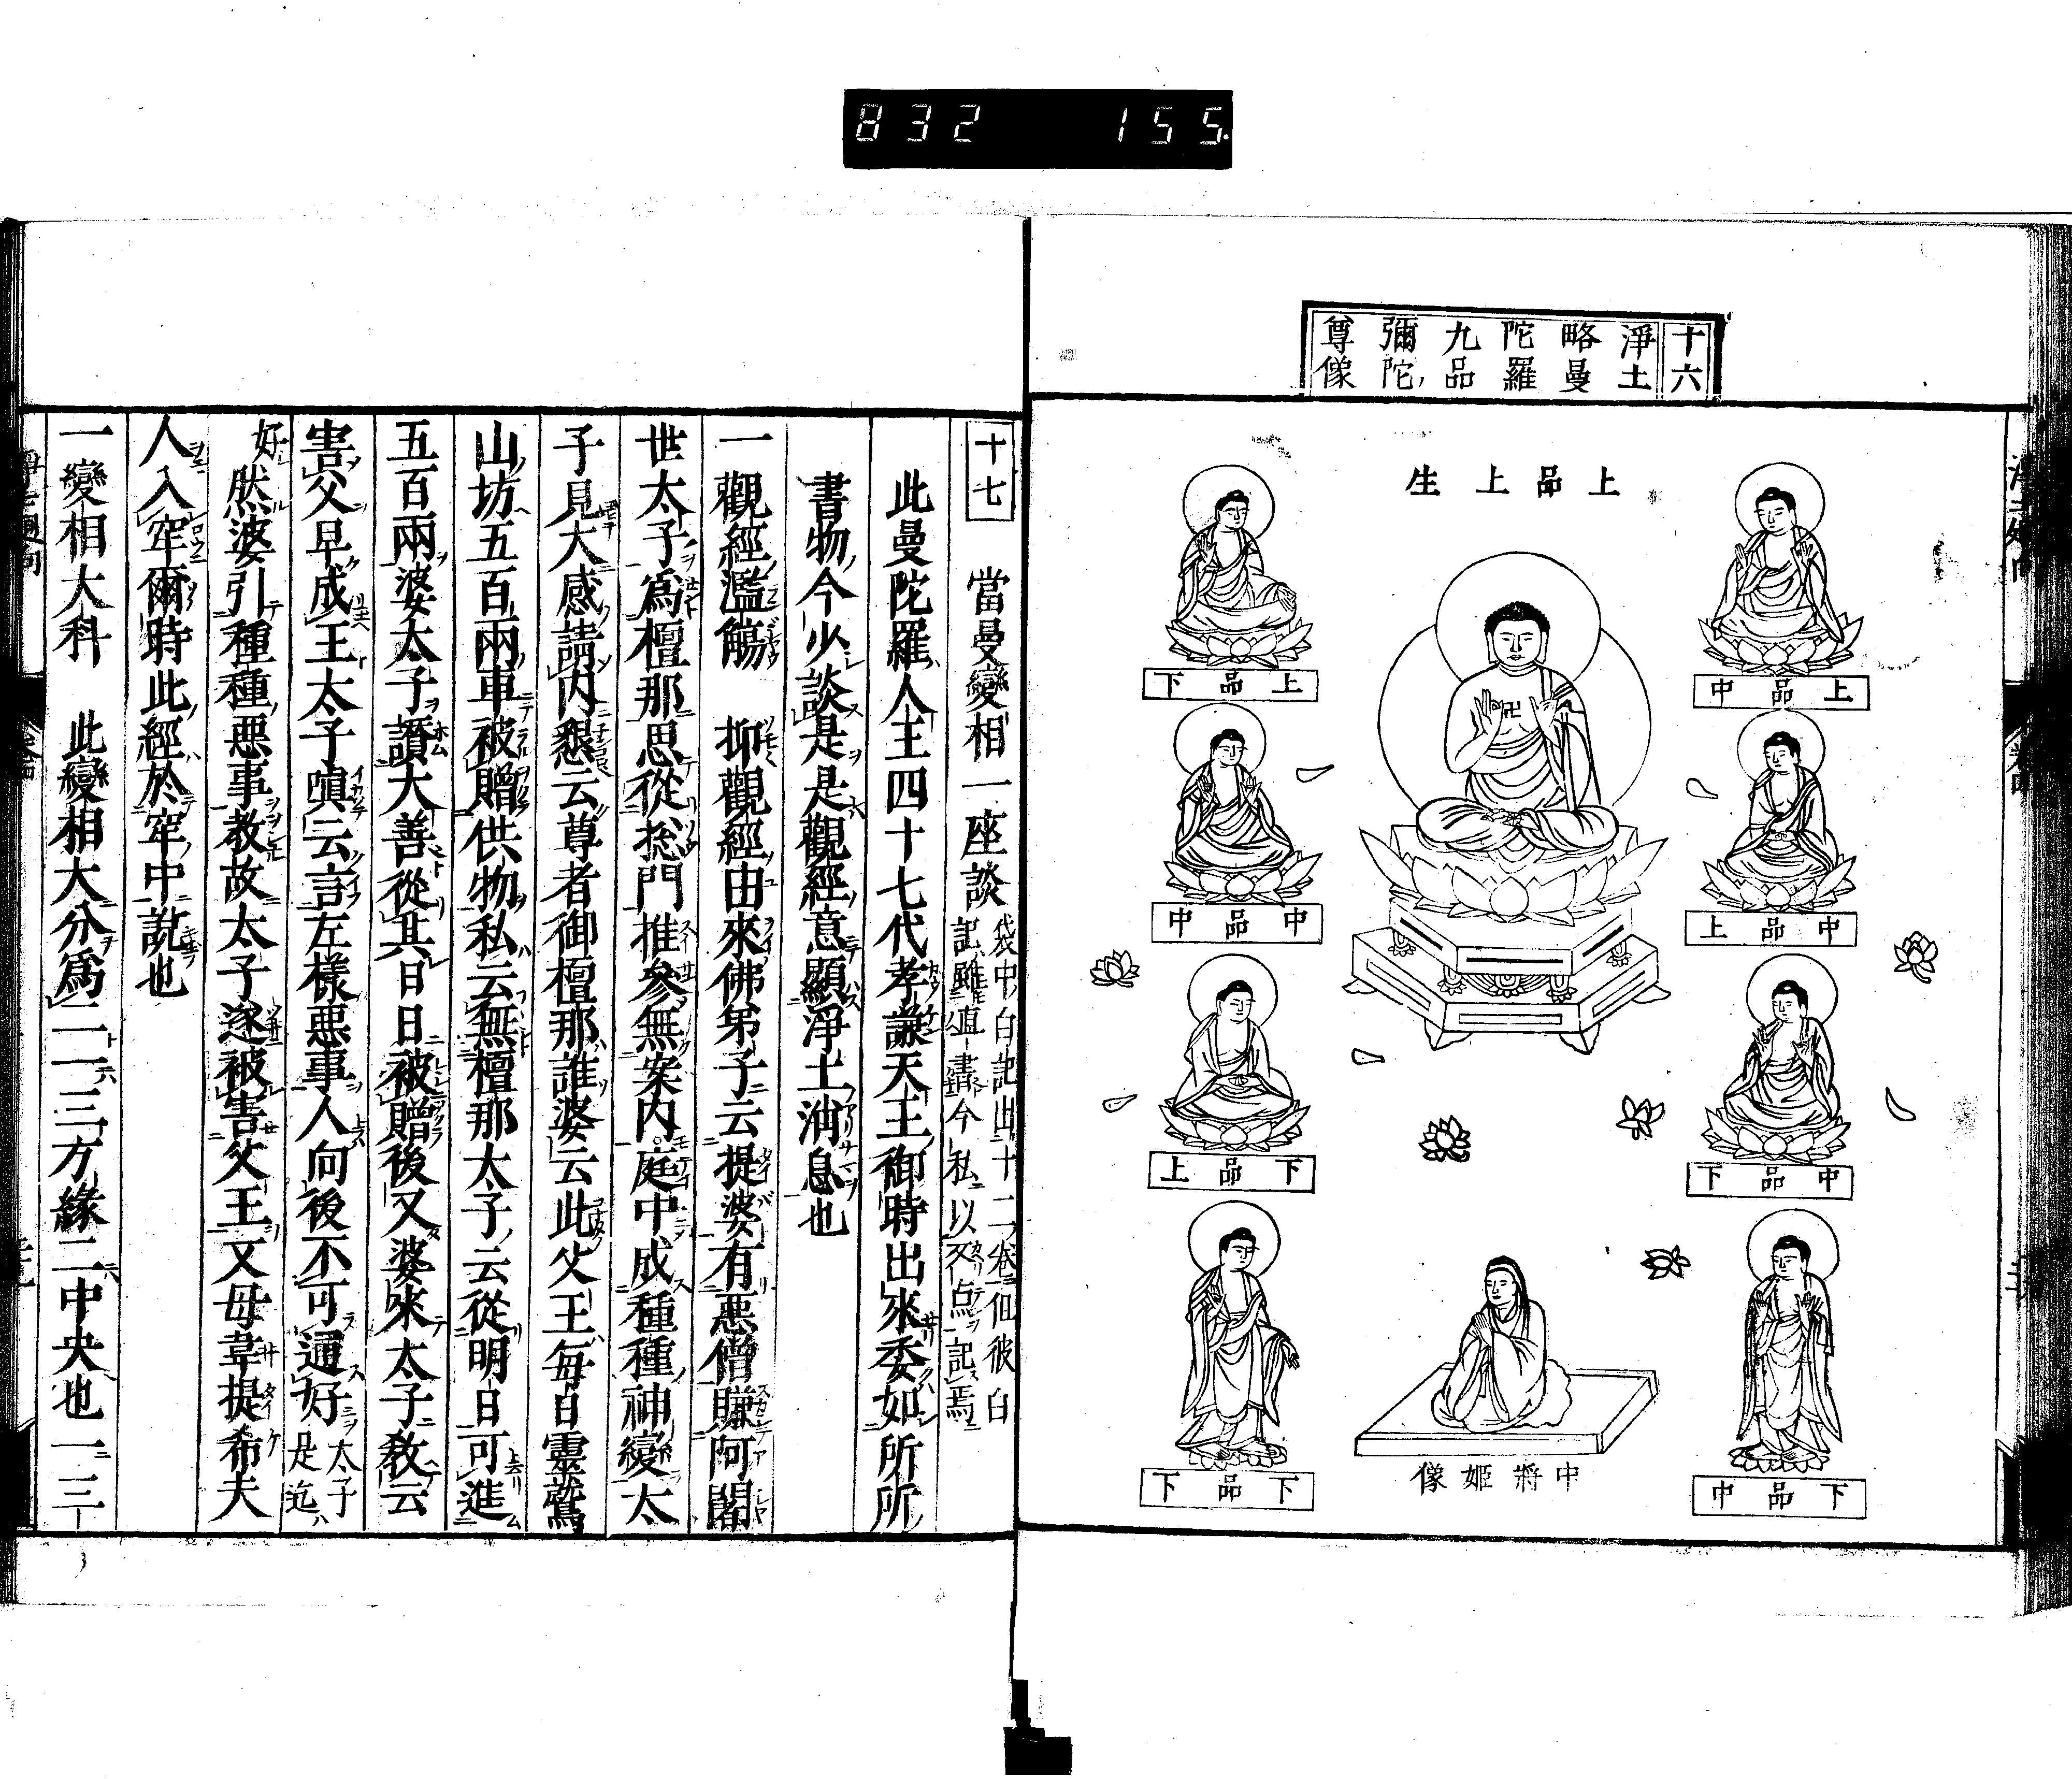 832 155.
十六
淨土
略曼
陀羅
九品
彌陀
尊像
上品上生
上品中
上品下
中品上
中品中
中品下
下品上
下品中
下品下
中將姬像
十七 當曼變相一座談
袋中白記出十二卷但彼白
記雖直書今私以文点記焉
此曼陀羅人王四十七代孝謙天王御時出來委如所所
書物今少談是是觀經意顯淨土消息也
一觀經濫觴 抑觀經由來佛弟子云提婆有惡僧賺阿闍
世太子爲檀那思從捴門推參無案內庭中成種種神變太
子見大感請內懇云尊者御檀那誰婆云此父王每日靈鷲
山坊五百兩車被贈供物私云無檀那太子云從明日可進
五百兩婆太子讚大善從其日日被贈後又婆來太子教云
害父早成王太子嗔云言左樣惡事人向後不可通好太子
是迄
好然婆引種種惡事教故太子遂被害父王又母韋提希夫
人入牢爾時此經於牢中說也
一變相大科 此變相大分爲二一三方緣二中央也一三